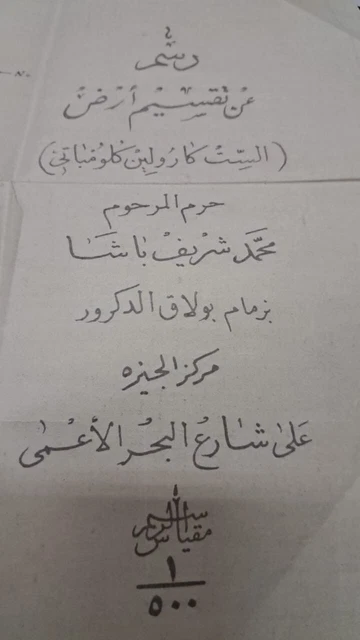 رسم
عن تقسيم أرض
(الست كارولين كلومباني)
حرم المرحوم
محمد شريف باشا
بزمام بولاق الدكرور
مركز الجيزه
على شارع البحر الأعمى
مقياس الرسم
١
٥٠٠